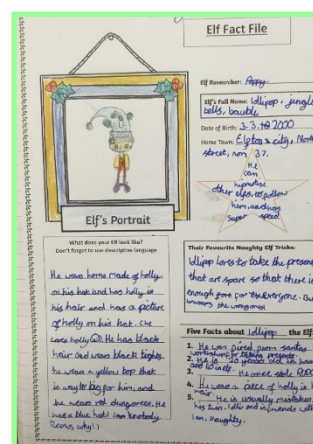 Elf Fact File
Elf Researcher: Poppy
Elf's Full Name: lollipop, jungle
bells, bauble
Date of Birth: 3.3. 2000
Home Town: city, North
street, 37.
He
can
hypnotise
other elfs, to follow
him and has
super speed
Elf's Portrait
What does your elf look like?
Don't forget to use descriptive language
He wears horns made of holly
on his hat and has holly in
his hair and has a picture
of holly on his hat. He
love holly. He has black
hair and wears black tights
he wears a yellow top that
is way to big for him and
he wears red dungarees. He
has a blue hat (and nobody
knows why!)
Their Favourite Naughty Elf Tricks:
lollipop loves to take the presents
that are spare so that there is
enough for everyone. But
Five Facts about lollipop the Elf
1. He was fired from santas
workshop for presents.
2. He is 20 years old in
3. He once stole
4. He wears a piece of holly in
hair
5. He is usually mistaken
I am, naughty.